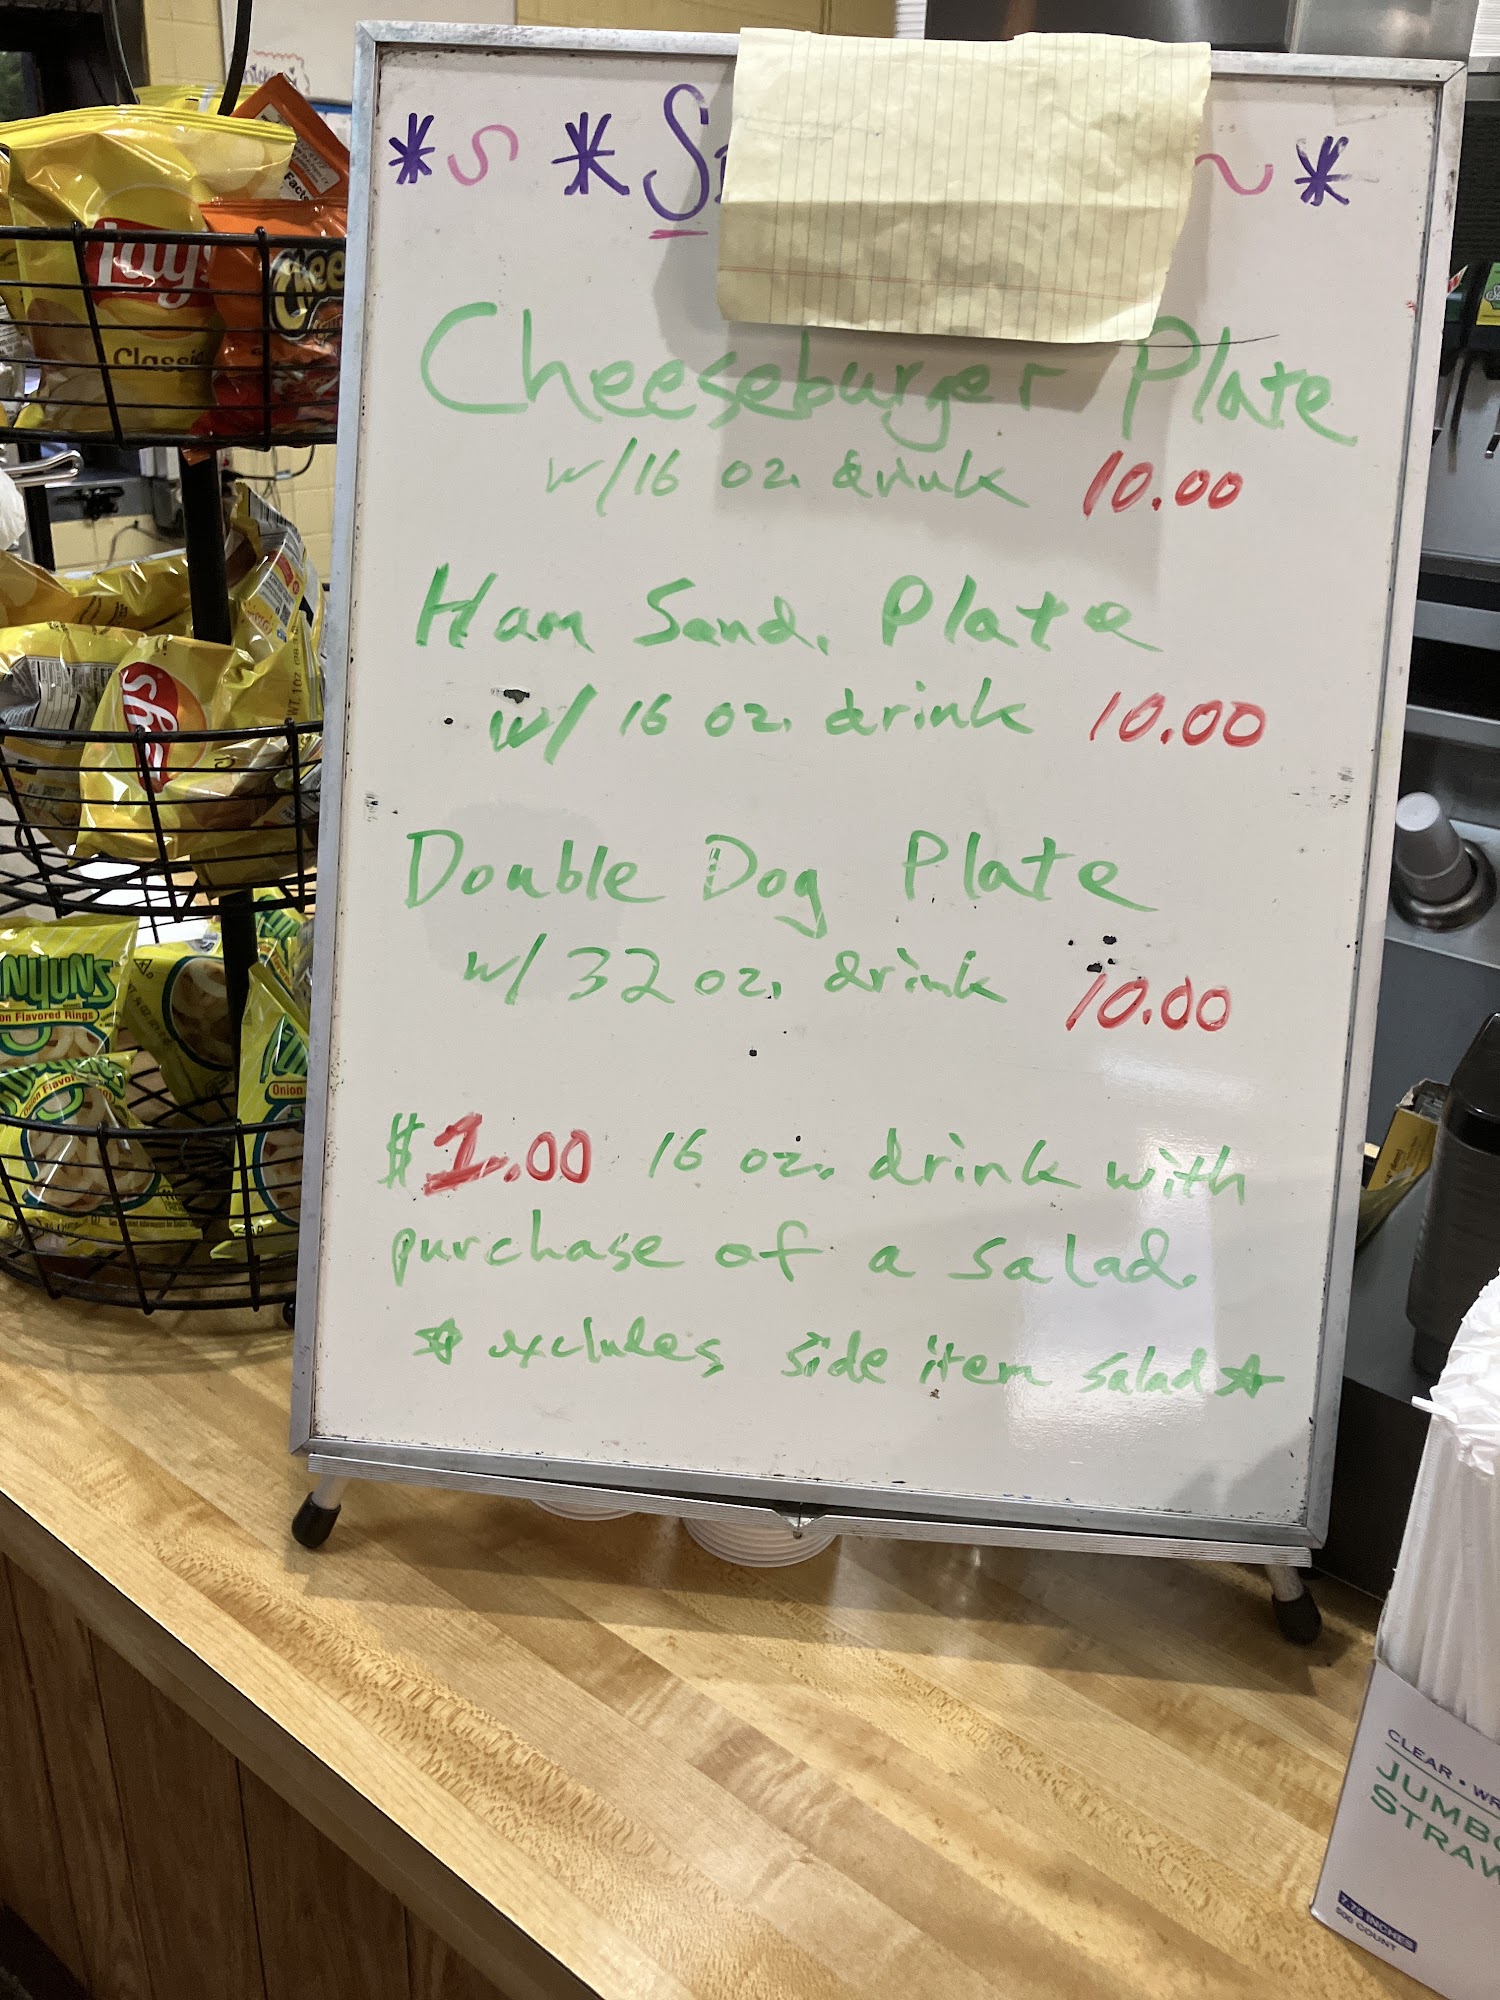 Cheeseburger Plate
w/16 oz. drink 10.00
Ham Sand. Plate
w/ 16 oz. drink 10.00
Double Dog Plate
w/ 32 oz. drink 10.00
$1.00 16 oz. drink with
purchase of a salad.
☆ excludes side item salad ☆
Lay's
Classic
Facts
Onion Flavored Rings
Onion
CLEAR •
JUMBO
7.75 INCHES
500 COUNT